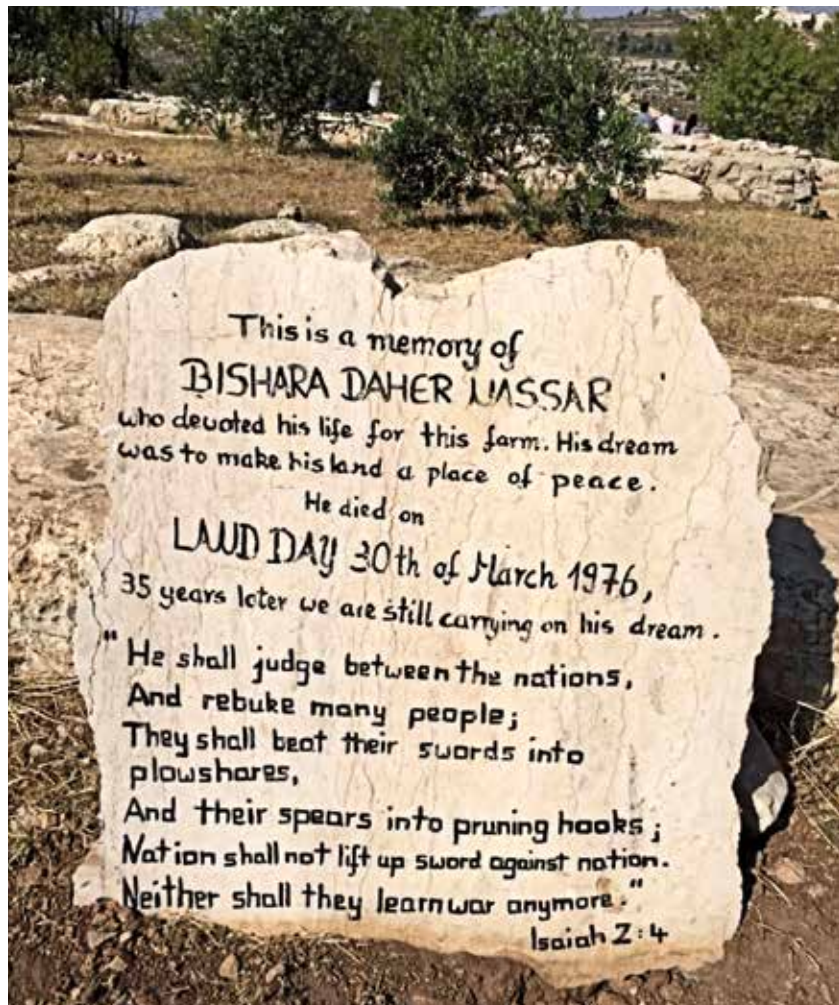 This is a memory of
BISHARA DAHER NASSAR
who devoted his life for this farm. His dream
was to make his land a place of peace.
He died on
LAND DAY 30th of March 1976,
35 years later we are still carrying on his dream.
"He shall judge between the nations,
And rebuke many people;
They shall beat their swords into
plowshares,
And their spears into pruning hooks;
Nation shall not lift up sword against nation.
Neither shall they learn war anymore."
Isaiah 2:4